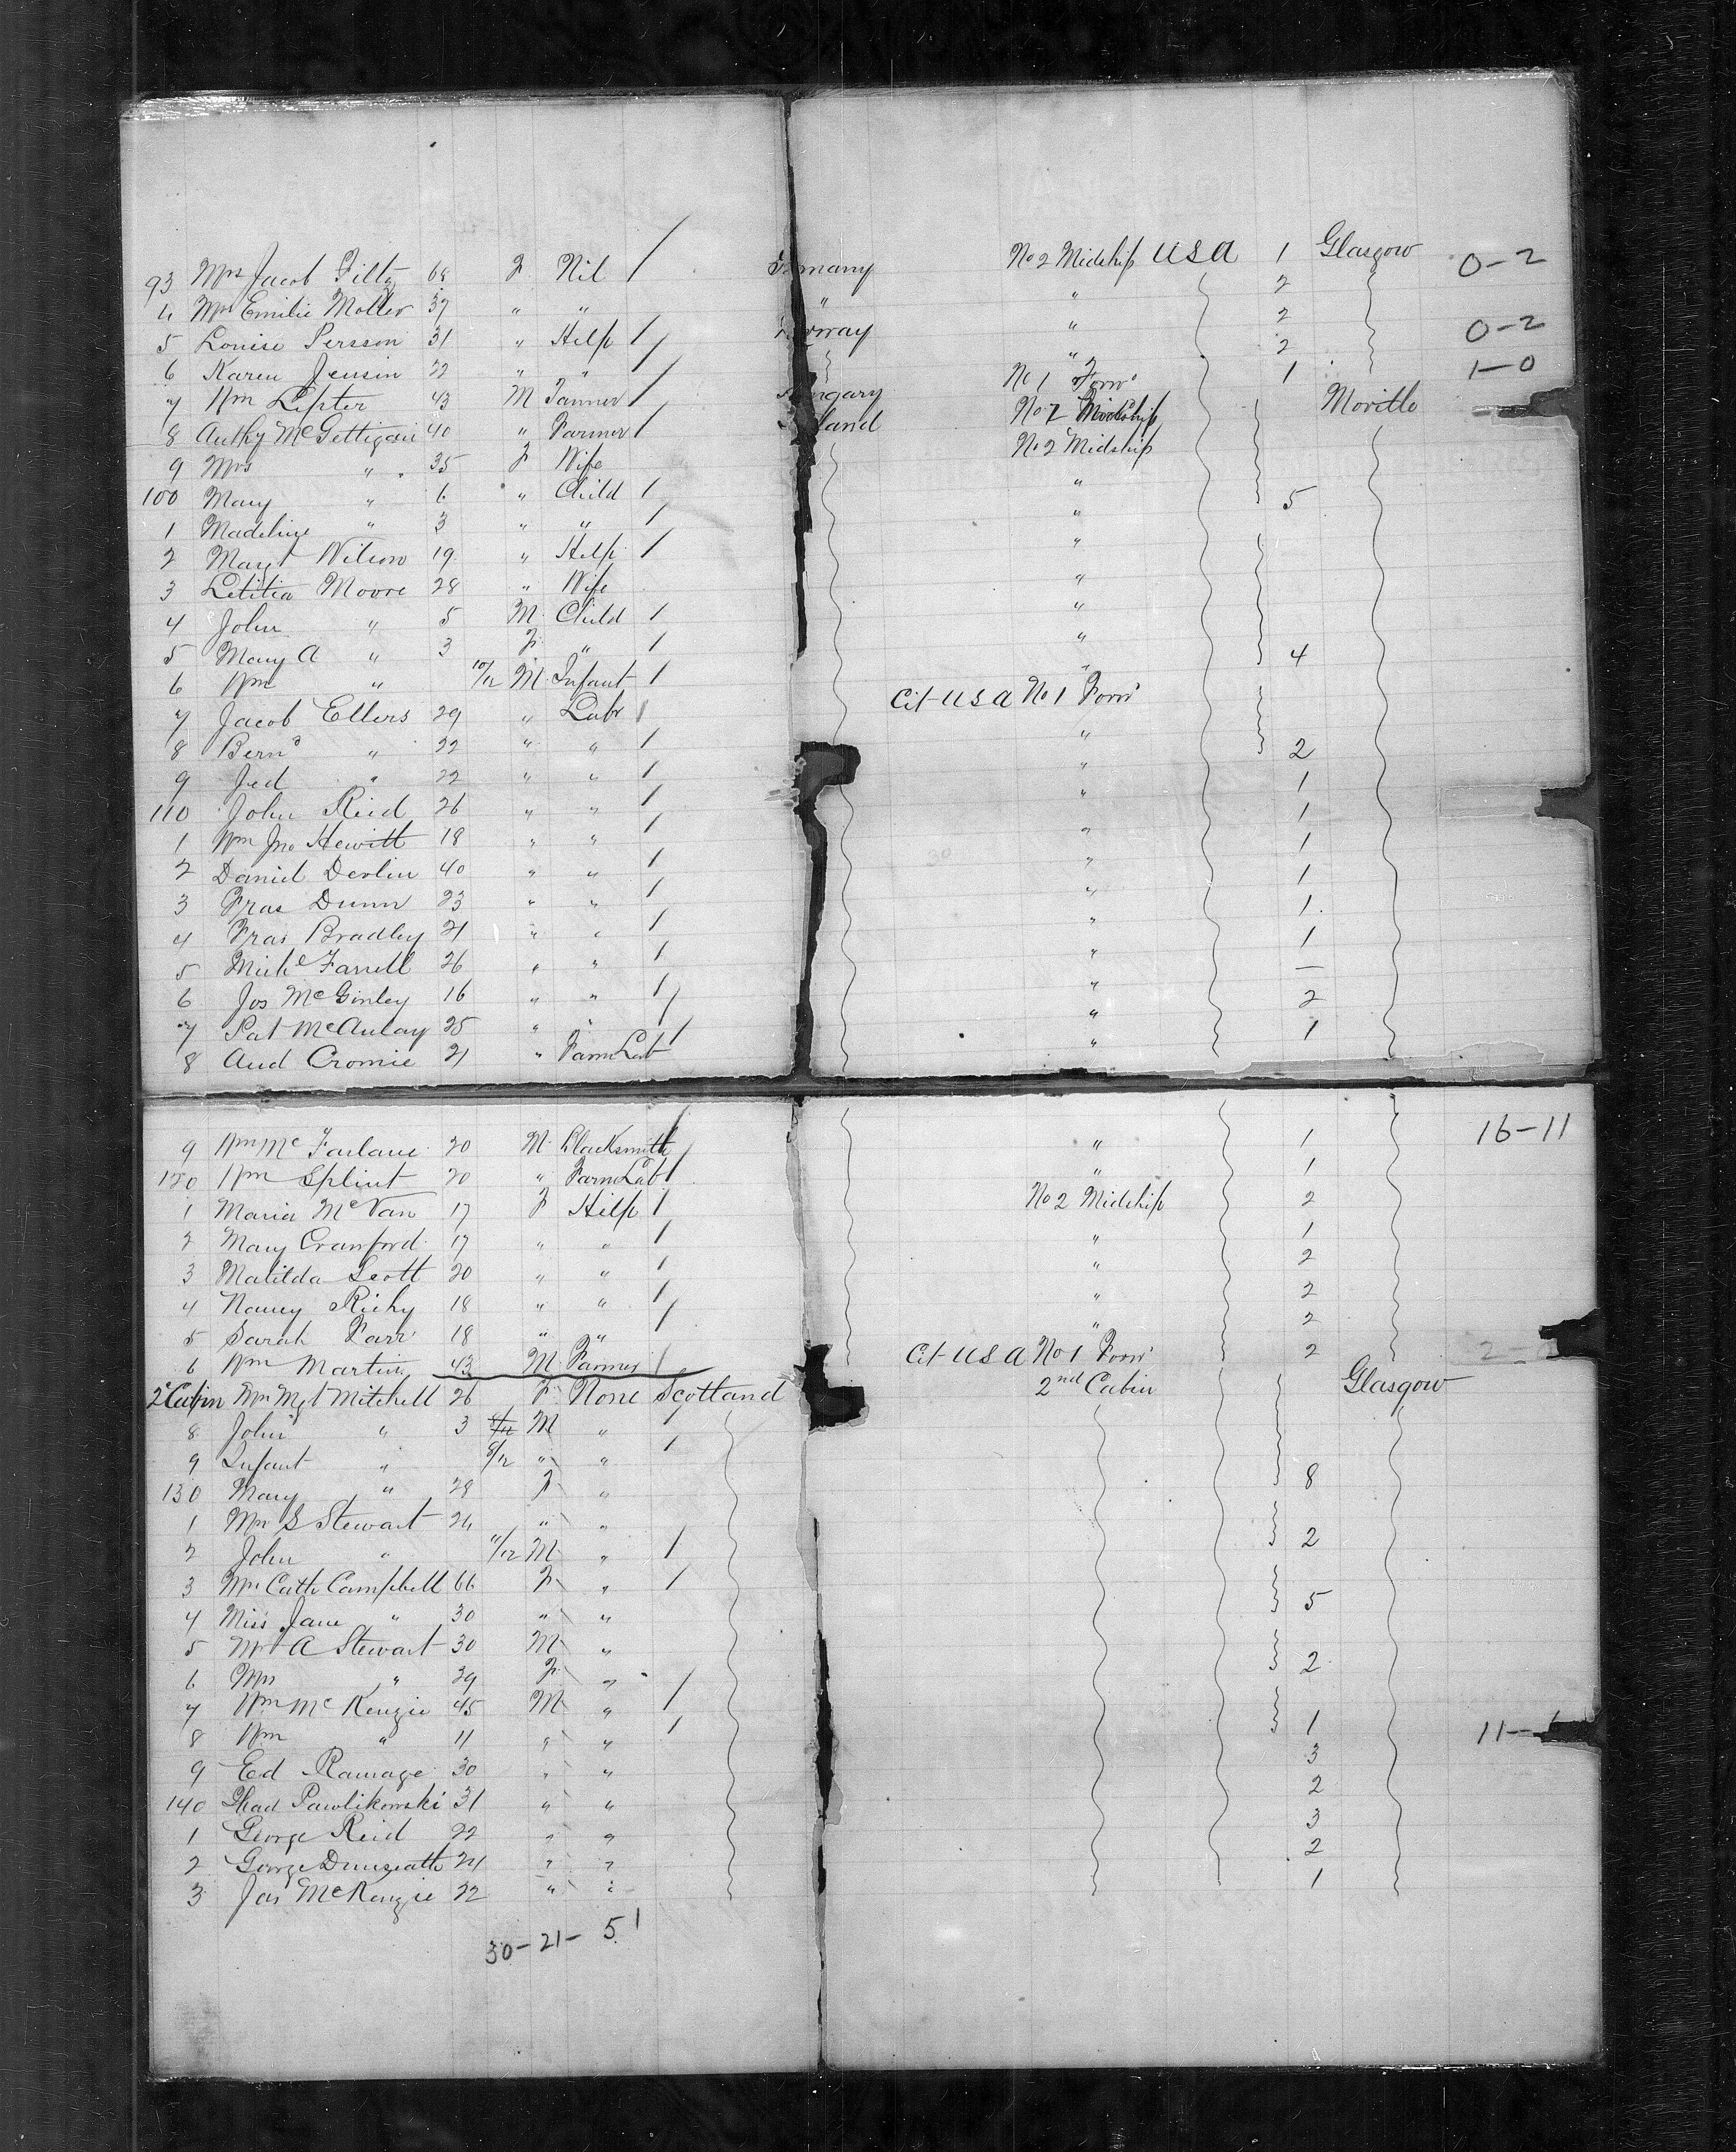 93 Mrs Jacob Filtz 68 F Nil / Germany No 2 Midship USA 1 Glasgow 0-2
4 Mrs Emilie Moller 37 " " " " 2
5 Louise Persson 31 " Help / Norway " 2 0-2
6 Karen Jensin 22 " " / " 2
7 Wm Lepter 43 M Tanner / Hungary No 1 Forwd 1 1-0
8 Anthy McGettigan 40 " Farmer / land No 2 Midship Moville
9 Mrs " 35 F Wife No 2 Midship
100 Mary " 6 " Child / "
1 Madeline " 3 " " / " 5
2 Margt Wilson 19 " Help / "
3 Letitia Moore 28 " Wife "
4 John " 5 M Child / "
5 Mary A " 3 F " / "
6 Wm " 10/12 M Infant / " 4
7 Jacob Ellers 29 " Labr / Cit USA No 1 Forwd
8 Bernd " 22 " " / "
9 Jed " 22 " " / " 2
110 John Reid 26 " " / " 1
1 Wm Jno Hewitt 18 " " / " 1
2 Daniel Devlin 40 " " / " 1
3 Fras Dunn 23 " " / " 1
4 Fras Bradley 21 " " / " 1
5 Michl Farrell 26 " " / " 1
6 Jos McGinley 16 " " / " —
7 Pat McAulay 25 " " / " 2
8 And Cromie 21 " Farm Lab / " 1
9 Wm McFarlane 20 M Blacksmith / " 1 16-11
120 Wm Splint 20 " Farm Lab / " 1
1 Maria McVan 17 F Help / No 2 Midship 2
2 Mary Crawford 17 " " / " 1
3 Matilda Scott 20 " " / " 2
4 Nancy Richy 18 " " / " 2
5 Sarah Farr 18 " " / " 2
6 Wm Martin 43 M Farmer / Cit USA No 1 Forwd 2
2d Cabin Mrs Mgt Mitchell 26 F None Scotland 2nd Cabin Glasgow
8 John " 3 M " /
9 Infant " 8/12 " " /
130 Mary " 28 F " 8
1 Mrs S Stewart 24 " "
2 John " 11/12 M " / 2
3 Mrs Cath Campbell 66 F " /
4 Miss Jane " 30 " " 5
5 Mr A Stewart 30 M "
6 Mrs " 39 F " / 2
7 Wm McKenzie 45 M " /
8 Wm " 11 " " / 1 11-
9 Ed Ramage 30 " " 3
140 Thad Pawlikowski 31 " " 2
1 George Reid 22 " " 3
2 George Dunseath 24 " " 2
3 Jas McKenzie 22 " " 1
30-21-51